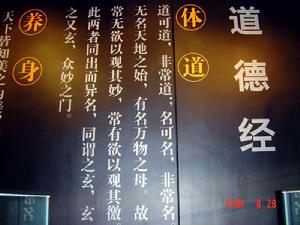 道德经
体道
道可道，非常道；名可名，非常名
无名天地之始，有名万物之母。故
常无欲以观其妙，常有欲以观其徼。
此两者同出而异名，同谓之玄，玄
之又玄，众妙之门。
养身
天下皆知美之
8.29